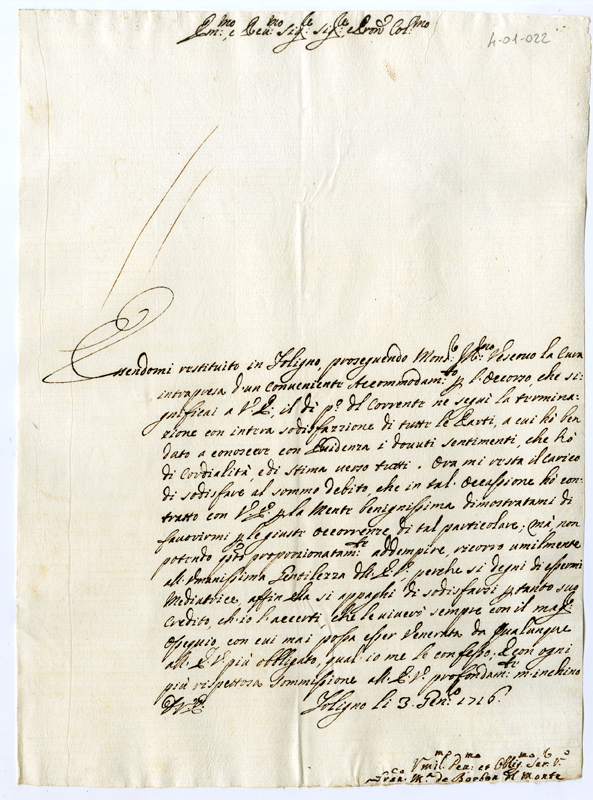 Em.mo, e Reu.mo Sig.re Sig.re e Pron. Col.mo
4-01-022
Essendomi restituito in Foligno, proseguendo Mons.r Ill.mo Vescouo la Cura
intrapresa d'un conueniente Accommodam.to p l'Occorso, che si-
gnificai a V.E., il dì p.o del Corrente ne seguì la termina-
zione con intera sodisfazzione di tutte le Parti, a cui hò ben
dato a conoscere con Euidenza i douuti sentimenti, che hò
di Cordialità, e di Stima uerso tutti. Ora mi resta il carico
di sodisfare al sommo debito, che in tal Occasione hò con-
tratto con V.E. p la Mente benignissima dimostratami di
fauorirmi p le giuste occorrenze di tal particolare; mà non
potendo q.to proporzionatam.te addempire, ricorro umilmente
all'Vmanissima Gentilezza dell'E.V. perche si degni di essermi
Mediatrice, affin si appaghi di sodisfarsi p tanto suo
Credito, ch'io l'accerti, che le uiuerò sempre con il mag.re
Ossequio, con cui mai possa esser Venerata da qualunque
all'E.V. più obbligato, qual io me le confesso. E con ogni
più rispettosa Sommissione all'E.V. profondam.te m'inchino
D.V.E.
Foligno li 3. Gen.ro 1716.
Vmil.mo Deu.mo et Oblig.mo Ser. V.o
Fran.co M.a de Borbon del Monte